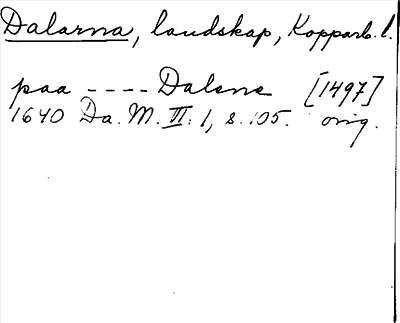 Dalarna, landskap, Kopparb. l.
paa ---- Dalene [1497]
1640 Da. M. VI: 1, s. 105. orig.